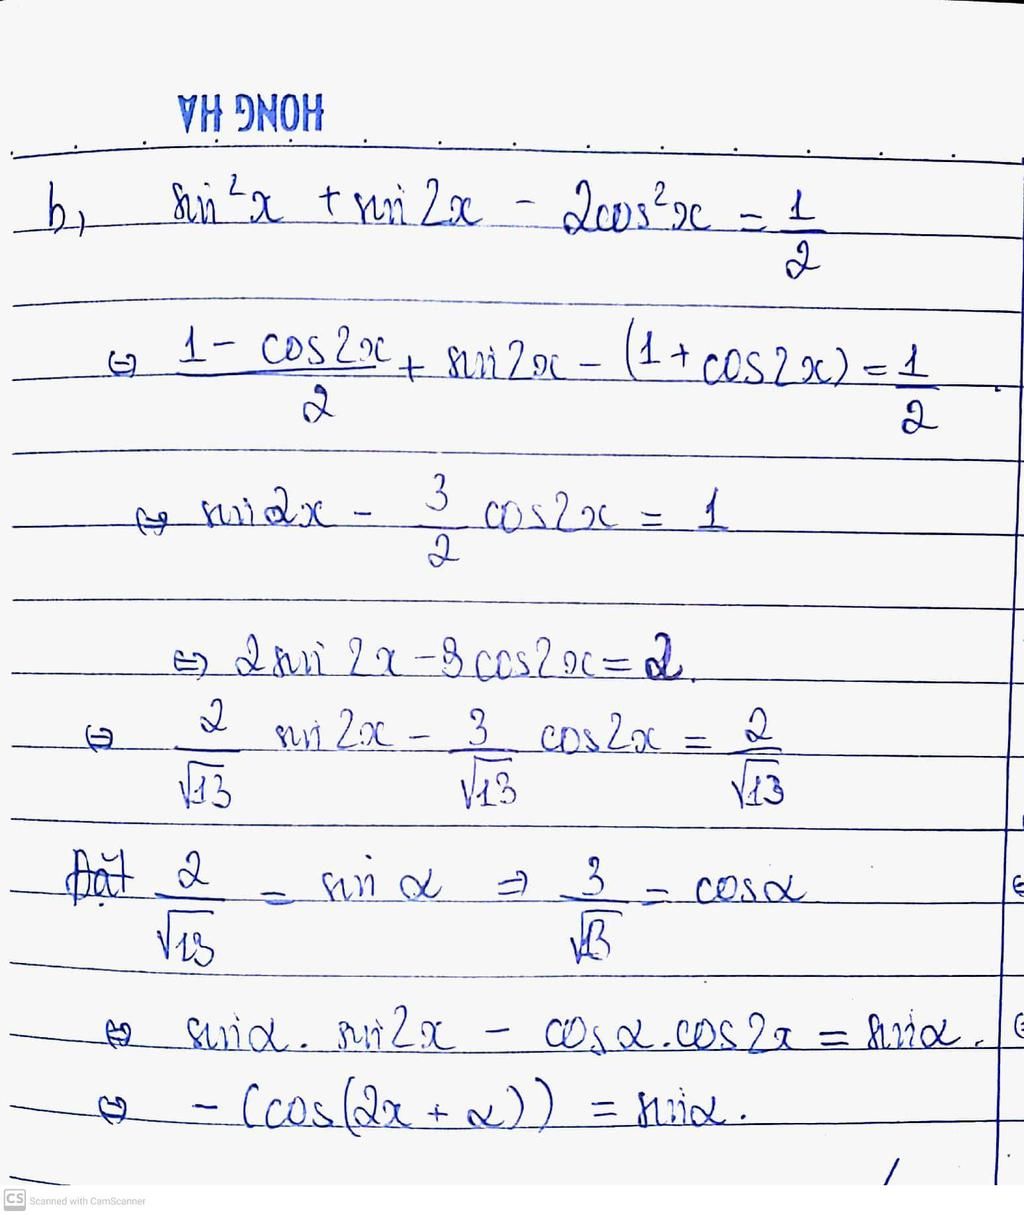 HONG HA
b, sin²x + sin2x - 2cos²x = 1/2
⇔ (1 - cos2x)/2 + sin2x - (1 + cos2x) = 1/2
⇔ sin2x - 3/2 cos2x = 1
⇔ 2sin2x - 3cos2x = 2.
⇔ 2/√13 sin2x - 3/√13 cos2x = 2/√13
Đặt 2/√13 = sin α ⇒ 3/√13 = cosα
⇔ sinα. sin2x - cosα.cos2x = sinα.
⇔ - (cos(2x + α)) = sinα.
CS Scanned with CamScanner